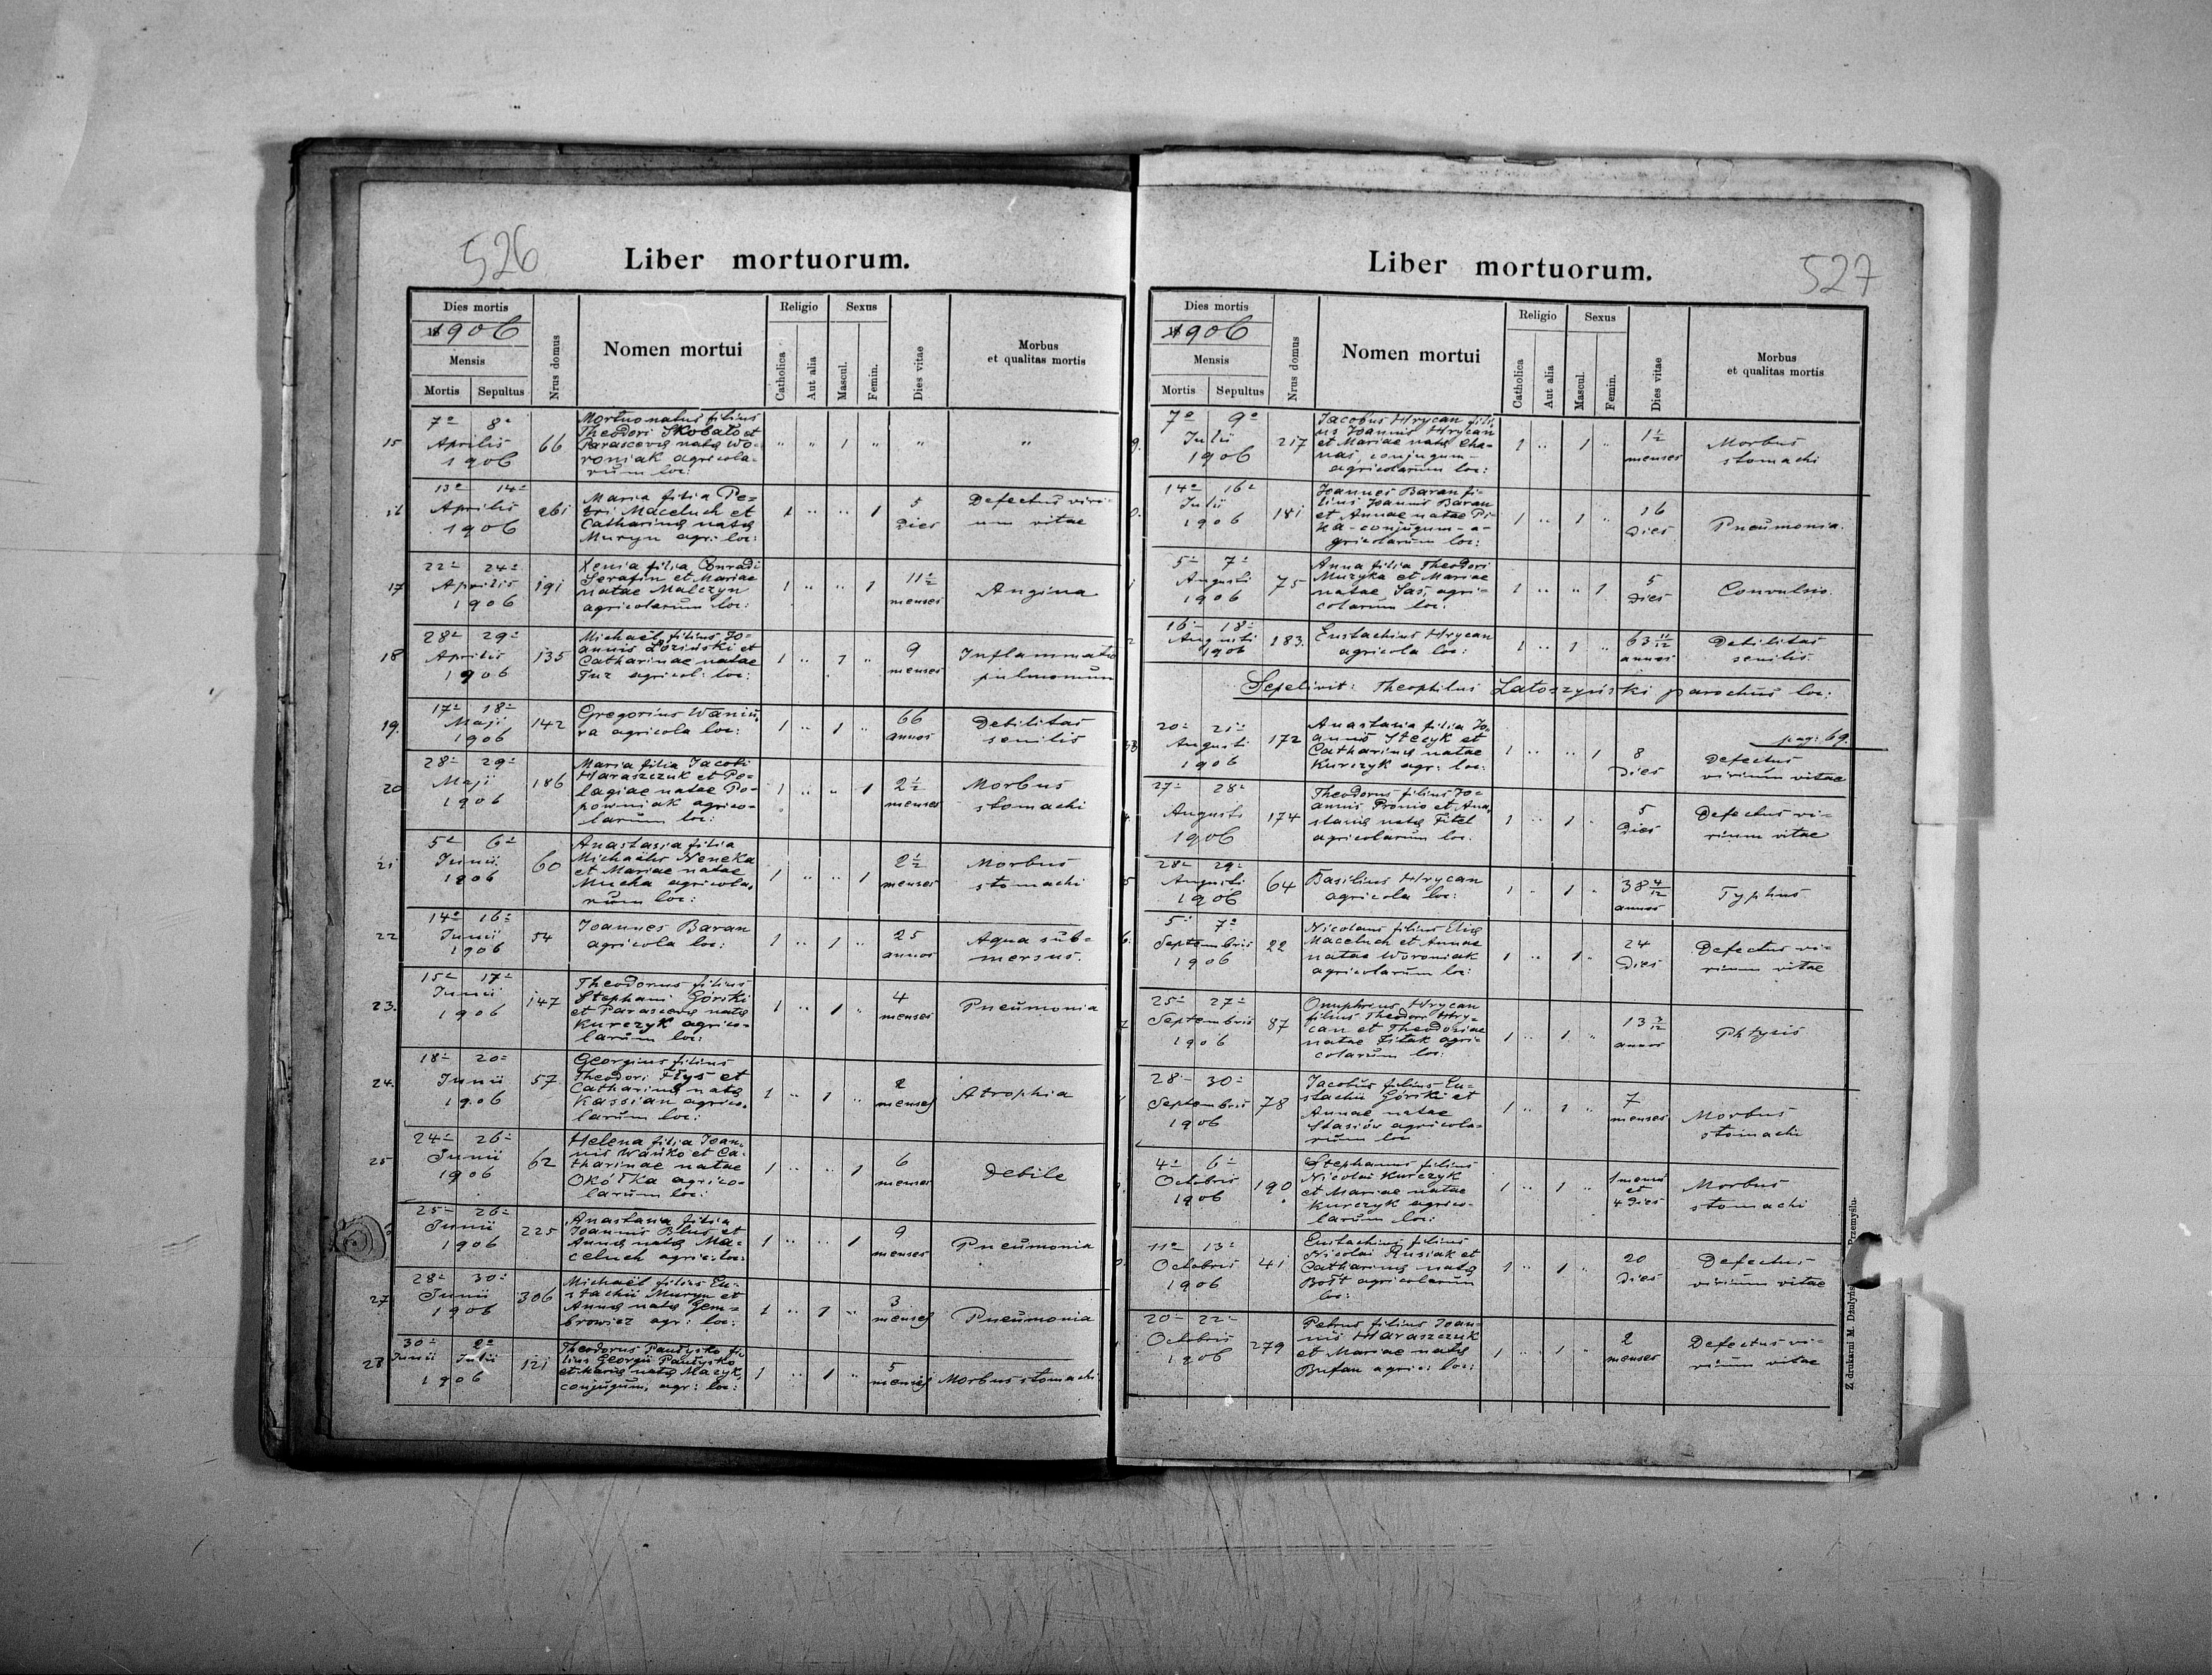 526
Liber mortuorum.
Dies mortis
1906
Mensis
Mortis
Sepultus
Nrus domus
Nomen mortui
Religio
Catholica
Aut alia
Sexus
Mascul.
Femin.
Dies vitae
Morbus
et qualitas mortis
15
7a 8a
Aprilis
1906
66
Mortuo natus filius
Theodori Skobało et
Parascevę natę Wo-
roniak agricola-
rum loc:
" " 1 " " "
16
13a 14a
Aprilis
1906
261
Maria filia Pe-
tri Maceluch et
Catharinę natę
Muryn agr: loc:
1 " " 1
5
Dies
Defectus viri-
um vitae
17
22a 24a
Aprilis
1906
191
Xenia filia Conradi
Serafin et Mariae
natae Malczyn
agricolarum loc:
1 " " 1
11½
menses
Angina
18
28a 29a
Aprilis
1906
135
Michaël filius Jo-
annis Łoziński et
Catharinae natae
Tuz agricol: loc:
1 " 1 "
9
menses
Inflammatio
pulmonum
19.
17a 18a
Maji
1906
142
Gregorius Waniu-
ra agricola loc:
1 " 1 "
66
annos
Debilitas
senilis
20
28a 29a
Maji
1906
186
Maria filia Jacobi
Haraszczuk et Pe-
lagiae natae Po-
powniak agrico-
larum loc:
1 " " 1
2½
menses
Morbus
stomachi
21
5a 6a
Junii
1906
60
Anastasia filia
Michaëlis Neneka
et Mariae natae
Mucha agricola-
rum loc:
1 " " 1
2½
menses
Morbus
stomachi
22
14a 16a
Junii
1906
54
Joannes Baran
agricola loc:
1 " 1 "
25
annos
Aqua sub-
mersus.
23.
15a 17a
Junii
1906
147
Theodorus filius
Stephani Górski
et Parascevę natę
Kurczyk agrico-
larum loc:
1 " 1 "
4
menses
Pneumonia
24.
18a 20a
Junii
1906
57
Georgius filius
Theodori Flys et
Catharinę natę
Kassian agrico-
larum loc:
1 " 1 "
2
menses
Atrophia
25
24a 26a
Junii
1906
62
Helena filia Joan-
nis Wańko et Ca-
tharinae natae
Okółka agrico-
larum loc:
1 " " 1
6
menses
Debile
25a 26a
Junii
1906
225
Anastasia filia
Joannis Blus et
Annę natę Ma-
celuch agric: loc:
1 " " 1
9
menses
Pneumonia
27
28a 30a
Junii
1906
306
Michaël filius Eu-
stachii Muryn et
Annę natę Gem-
browicz agr: loc:
1 " 1 "
3
menses
Pneumonia
28
30a 2a
Junii Julii
1906
121
Theodorus Pawłysko fi-
lius Georgii Pawłysko
et Marię natę Mazyk,
conjugum, agr: loc:
1 " 1 "
5
menses
Morbus stomachi
527
Liber mortuorum.
Dies mortis
1906
Mensis
Mortis
Sepultus
Nrus domus
Nomen mortui
Religio
Catholica
Aut alia
Sexus
Mascul.
Femin.
Dies vitae
Morbus
et qualitas mortis
9.
7a 9a
Julii
1906
217
Jacobus Hrycan fili-
us Joannis Hrycan
et Mariae natę Cha-
nas, conjugum-
agricolarum loc:
1 " 1 "
1½
menses
Morbus
stomachi
0.
14a 16a
Julii
1906
181
Joannes Baran fi-
lius Joannis Baran
et Annae natae Pi-
ka - conjugum - a-
gricolarum loc:
1 " 1 "
16
Dies
Pneumonia.
1
5a 7a
Augusti
1906
75
Anna filia Theodori
Muzyka et Mariae
natae Sas, agri-
colarum loc:
1 " " 1
5
Dies
Convulsio.
2
16a 18a
Augusti
1906
183.
Eustachius Hrycan
agricola loc:
1 " 1 "
63 11/12
annos
Debilitas
senilis.
Sepelivit: Theophilus Łatoszyński parochus loc:
pag: 69.
20a 21a
Augusti
1906
172
Anastasia filia Jo-
annis Stecyk et
Catharinę natae
Kurczyk agr: loc:
1 " " 1
8
Dies
Defectus
virium vitae
4.
27a 28a
Augusti
1906
174
Theodorus filius Jo-
annis Pronio et Ana-
stasię natę Fitel
agricolarum loc:
1 " 1 "
5
Dies
Defectus vi-
rium vitae
5
28a 29a
Augusti
1906
64
Basilius Hrycan
agricola loc:
1 " 1 "
38 4/12
annos
Typhus
6.
5a 7a
Septembris
1906
22
Nicolaus filius Elię
Maceluch et Annae
natae Woroniak
agricolarum loc:
1 " 1 "
24
Dies
Defectus vi-
rium vitae
7
25a 27a
Septembris
1906
87
Onuphrius Hrycan
filius Theodori Hry-
can et Theodosiae
natae Fitak agri-
colarum loc:
1 " 1 "
13 2/12
annos
Phtysis
28a 30a
Septembris
1906
78
Jacobus filius Eu-
stachii Górski et
Annae natae
Stasiów agricola-
rum loc
1 " 1 "
7
menses
Morbus
stomachi
4a 6a
Octobris
1906
190
Stephanus filius
Nicolai Kurczyk
et Mariae natae
Kurczyk agrico-
larum loc:
1 " 1 "
1 mensis
et
4 Dies
Morbus
stomachi
0.
11a 13a
Octobris
1906
41
Eustachius filius
Nicolai Rusiak et
Catharinę natę
Bołt agricolarum
loc:
1 " 1 "
20
Dies
Defectus
virium vitae
20a 22a
Octobris
1906
279
Petrus filius Joan-
nis Haraszczuk
et Mariae natę
Bufan agric: loc:
1 " 1 "
2
menses
Defectus vi-
rium vitae
Z drukarni M. Dżułyńs Przemyślu.